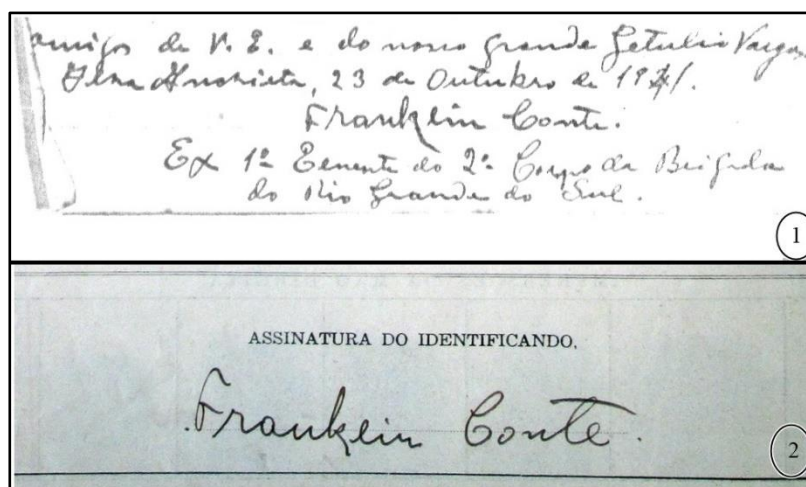 amigos de V. E. e do nosso grande Getulio Vargas
Ilha Anchieta, 23 de Outubro de 1941.
Franklin Conte.
Ex 1º Tenente do 2º Corpo da Brigada
do Rio Grande do Sul.
1
ASSINATURA DO IDENTIFICANDO.
Franklin Conte.
2